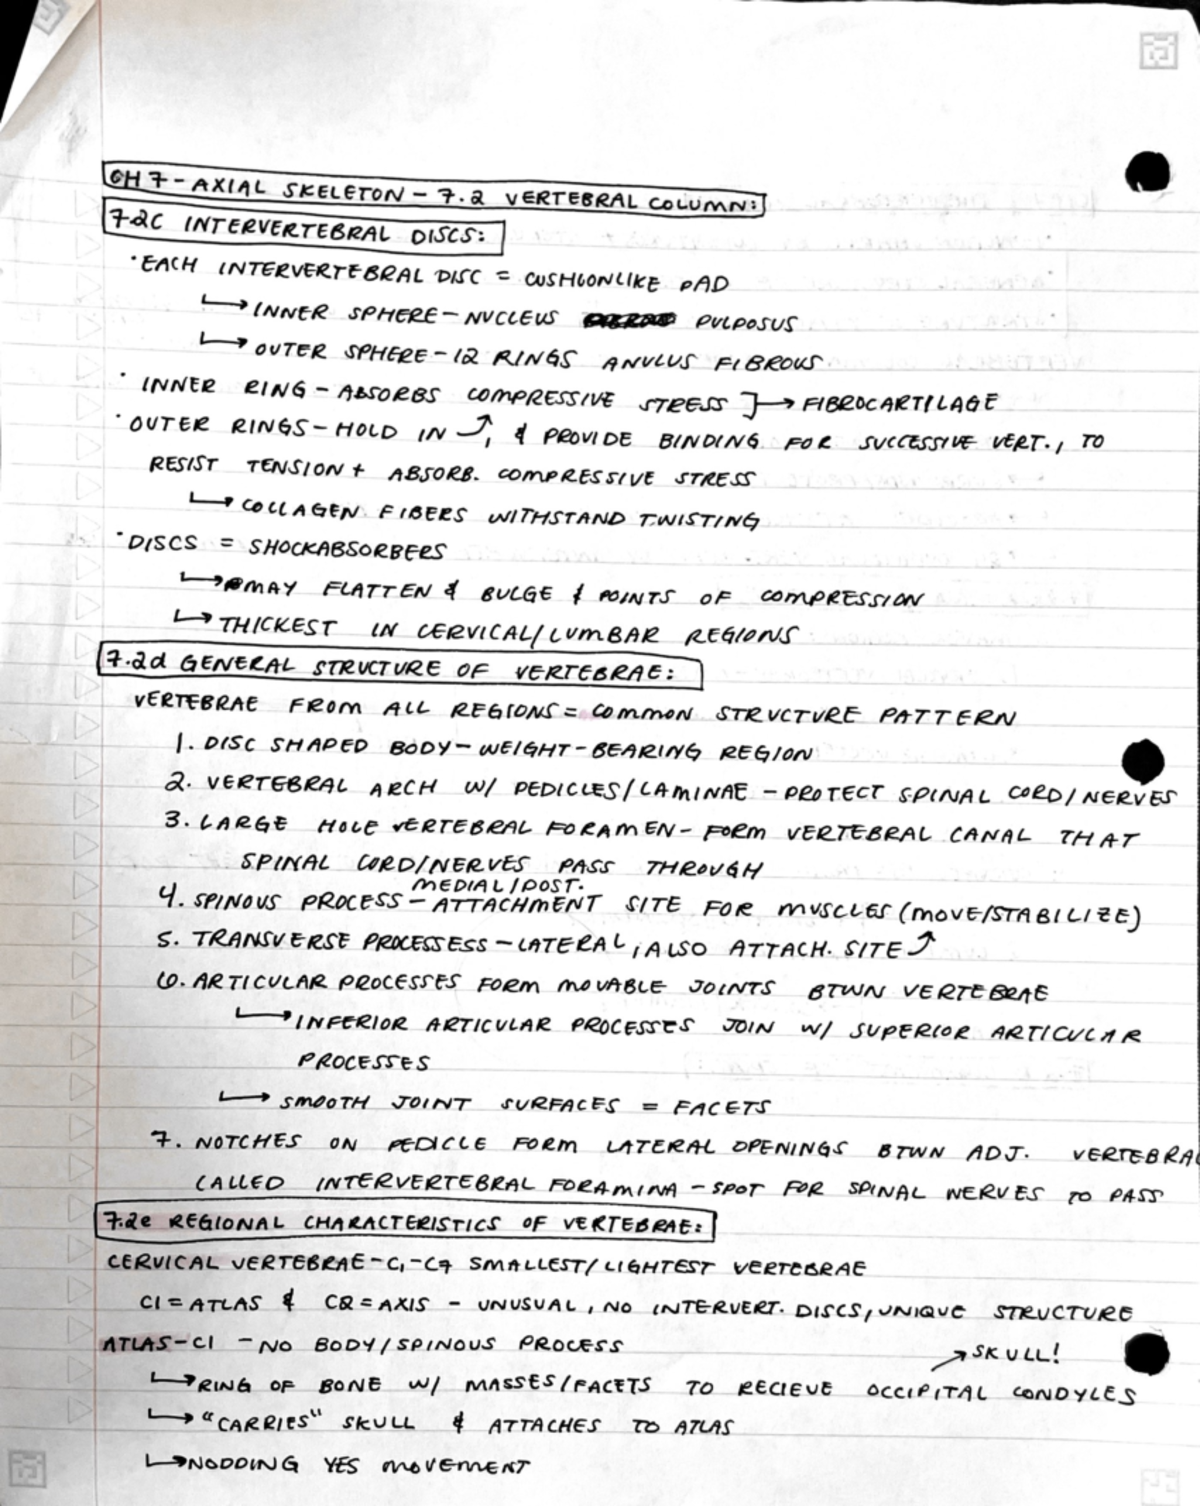 CH 7 - AXIAL SKELETON - 7.2 VERTEBRAL COLUMN:
7.2C INTERVERTEBRAL DISCS:
· EACH INTERVERTEBRAL DISC = CUSHIONLIKE PAD
↳ INNER SPHERE - NUCLEUS PULPOSUS
↳ OUTER SPHERE - 12 RINGS ANULUS FIBROUS
· INNER RING - ABSORBS COMPRESSIVE STRESS ]→ FIBROCARTILAGE
· OUTER RINGS - HOLD IN ⤴, & PROVIDE BINDING FOR SUCCESSIVE VERT., TO
RESIST TENSION + ABSORB. COMPRESSIVE STRESS
↳ COLLAGEN FIBERS WITHSTAND TWISTING
· DISCS = SHOCKABSORBERS
↳ MAY FLATTEN & BULGE & POINTS OF COMPRESSION
↳ THICKEST IN CERVICAL/LUMBAR REGIONS
7.2d GENERAL STRUCTURE OF VERTEBRAE:
VERTEBRAE FROM ALL REGIONS = COMMON STRUCTURE PATTERN
1. DISC SHAPED BODY - WEIGHT-BEARING REGION
2. VERTEBRAL ARCH W/ PEDICLES/LAMINAE - PROTECT SPINAL CORD/NERVES
3. LARGE HOLE VERTEBRAL FORAMEN - FORM VERTEBRAL CANAL THAT
SPINAL CORD/NERVES PASS THROUGH
MEDIAL/POST.
4. SPINOUS PROCESS - ATTACHMENT SITE FOR MUSCLES (MOVE/STABILIZE)
5. TRANSVERSE PROCESSESS - LATERAL, ALSO ATTACH. SITE ⤴
6. ARTICULAR PROCESSES FORM MOVABLE JOINTS BTWN VERTEBRAE
↳ INFERIOR ARTICULAR PROCESSES JOIN W/ SUPERIOR ARTICULAR
PROCESSES
↳ SMOOTH JOINT SURFACES = FACETS
7. NOTCHES ON PEDICLE FORM LATERAL OPENINGS BTWN ADJ. VERTEBRA
CALLED INTERVERTEBRAL FORAMINA - SPOT FOR SPINAL NERVES TO PASS
7.2e REGIONAL CHARACTERISTICS OF VERTEBRAE:
CERVICAL VERTEBRAE - C1-C7 SMALLEST/LIGHTEST VERTEBRAE
C1 = ATLAS & C2 = AXIS - UNUSUAL, NO INTERVERT. DISCS, UNIQUE STRUCTURE
ATLAS-C1 - NO BODY/SPINOUS PROCESS
→ SKULL!
↳ RING OF BONE W/ MASSES/FACETS TO RECIEVE OCCIPITAL CONDYLES
↳ "CARRIES" SKULL & ATTACHES TO ATLAS
↳ NODDING YES MOVEMENT